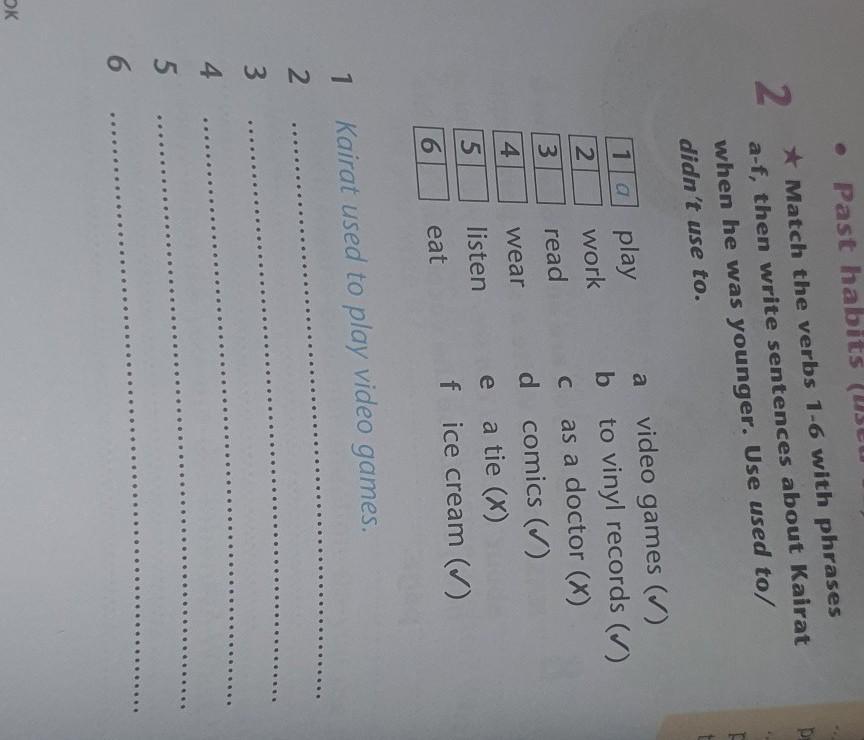 • Past habits (used
2 ★ Match the verbs 1-6 with phrases
a-f, then write sentences about Kairat
when he was younger. Use used to/
didn't use to.
1 a play a video games (✓)
2 work b to vinyl records (✓)
3 read c as a doctor (X)
4 wear d comics (✓)
5 listen e a tie (X)
6 eat f ice cream (✓)
1 Kairat used to play video games.
2
3
4
5
6
OK